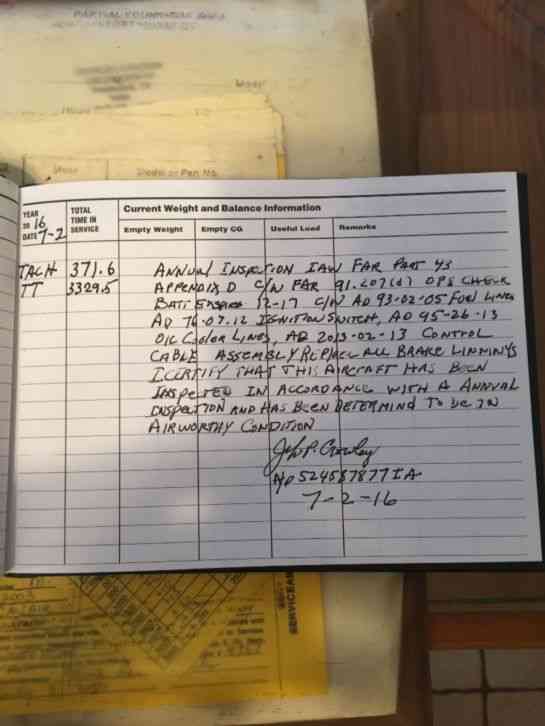 PARTIAL
Model or Part No.
YEAR
20 16
DATE 7-2
TOTAL
TIME IN
SERVICE
Current Weight and Balance Information
Empty Weight Empty CG Useful Load Remarks
TACH 371.6 ANNUAL INSPECTION IAW FAR PART 43
TT 3329.5 APPENDIX D C/W FAR 91.207(d) OPS CHECK
BATT EXPIRES 12-17 C/W AD 93-02-05 FUEL LINES
AD 76-07-12 IGNITION SWITCH, AD 95-26-13
OIL COOLER LINES, AD 2013-02-13 CONTROL
CABLE ASSEMBLY REPLACE ALL BRAKE LINNINGS
I CERTIFY THAT THIS AIRCRAFT HAS BEEN
INSPETED IN ACCORDANCE WITH A ANNUAL
INSPECTION AND HAS BEEN DETERMIND TO BE IN
AIRWORTHY CONDITION
John P. Crowley
NO 524567877 IA
7-2-16
SERVICEAB